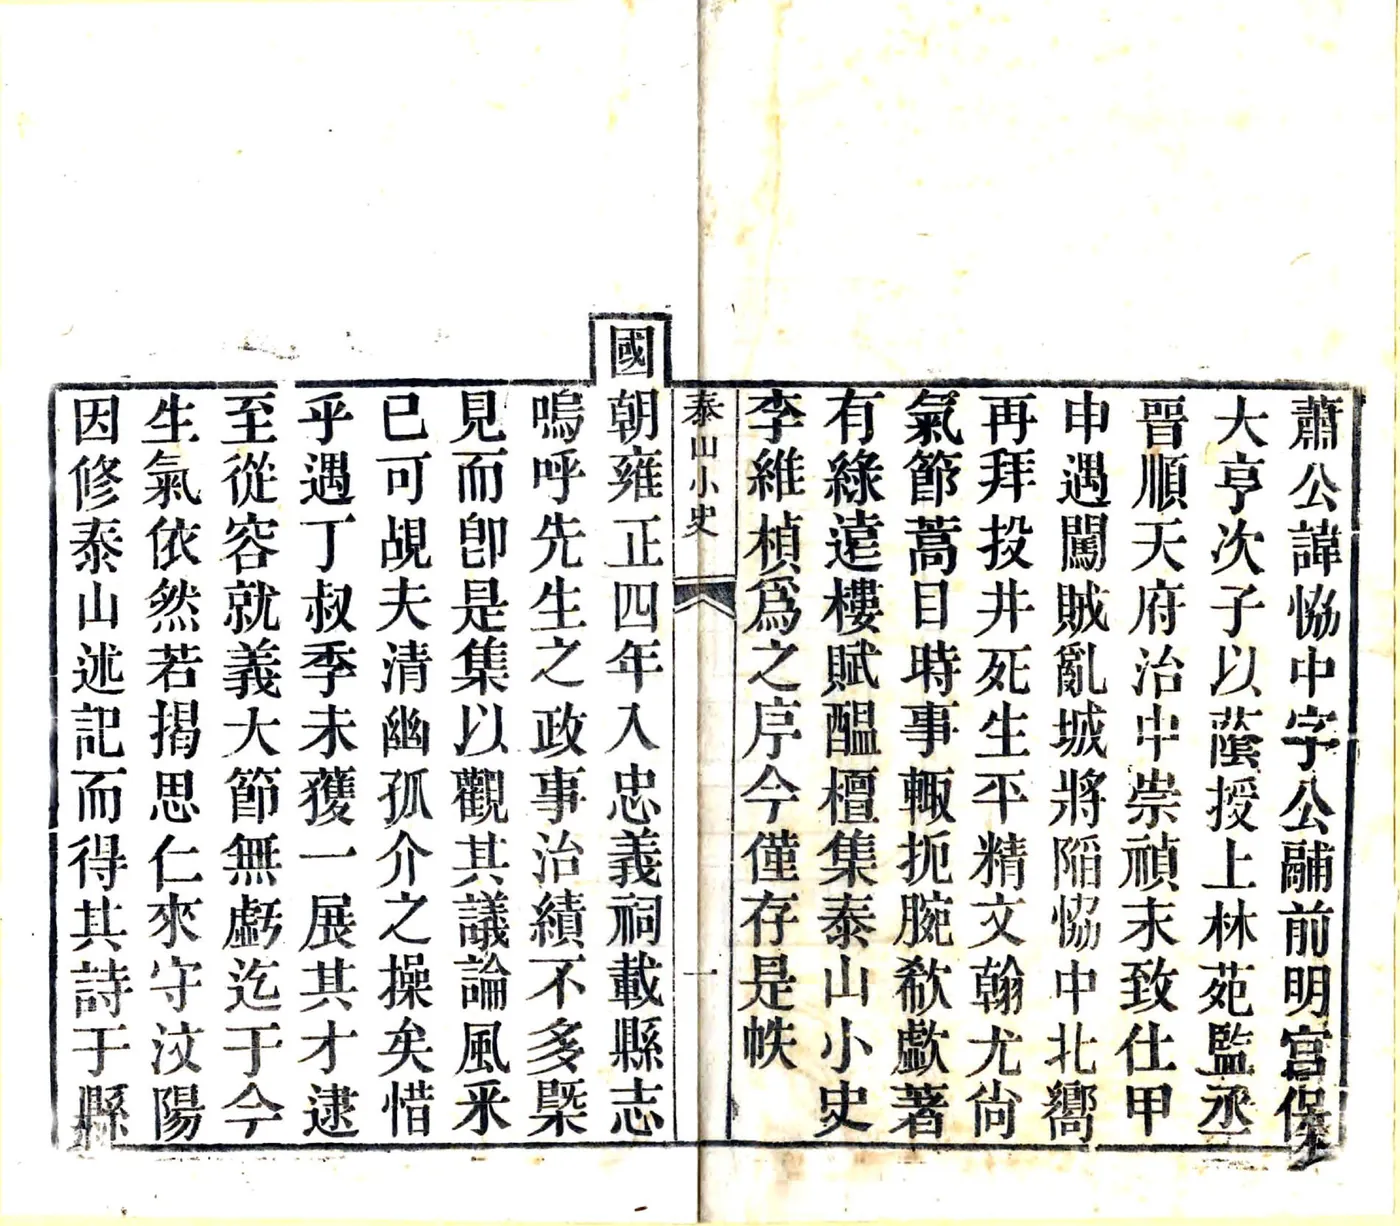 蕭公諱恊中字公黼前明宫保
大亨次子以蔭授上林苑監丞
晋順天府治中崇禎末致仕甲
申遇闖賊亂城將陷恊中北嚮
再拜投井死生平精文翰尤尙
氣節蒿目時事輙扼腕欷歔著
有綠遠樓賦醖檀集泰山小史
李維楨爲之序今僅存是帙
泰山小史
一
國朝雍正四年入忠義祠載縣志
嗚呼先生之政事治績不多槩
見而卽是集以觀其議論風采
已可覘夫清幽孤介之操矣惜
乎遇丁叔季未獲一展其才逮
至從容就義大節無虧迄于今
生氣依然若揭思仁來守汶陽
因修泰山述記而得其詩于縣